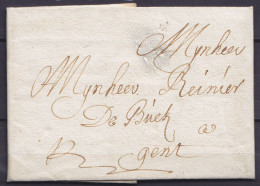 Mynheer
Mynheer Reinier
De Buck
a
gent